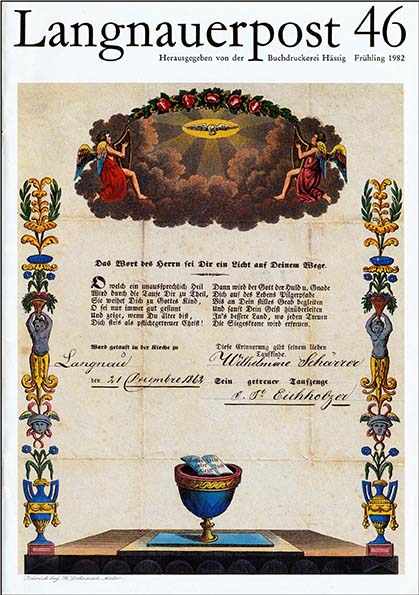 Langnauerpost 46
Herausgegeben von der Buchdruckerei Hässig Frühling 1982
Das Wort des Herrn sei Dir ein Licht auf Deinem Wege.
O welch ein unaussprechlich Heil
Wird durch die Taufe Dir zu Theil,
Sie weihet Dich zu Gottes Kind,
O sei nur immer gut gesinnt
Und zeige, wenn Du älter bist,
Dich stets als pflichtgetreuer Christ!
Dann wird der Gott der Huld u. Gnade
Dich auf des Lebens Pilgerpfade
Bis an Dein stilles Grab begleiten
Und sanft Dein Geist hinüberleiten
In's bess're Land, wo jeden Treuen
Die Siegeskrone wird erfreuen.
Ward getauft in der Kirche zu
Langnau
den 21 Decembre 1862
Diese Erinnerung gibt seinem lieben
Taufkinde.
Wilhelmine Schärrer
Sein getreuer Taufzeuge
Eichholzer
Zürich bey